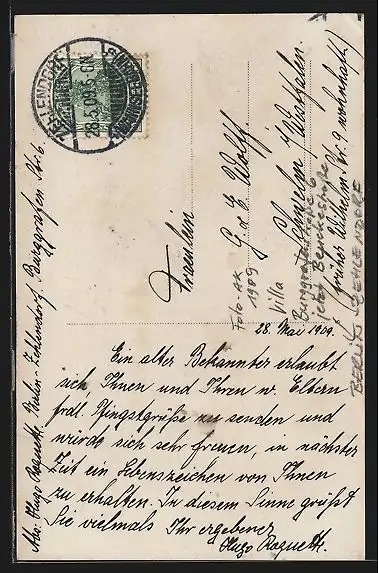 ZEHLENDORF
28.5.09.5-6N
(WANNSEEBAHN)
Fräulein
G & E Wolff.
Schwelm i/Westfalen.
früher Wilhelm Str. 9 wohnhaft!)
Foto-AK
1909
Villa
Burggrafenstraße 6
jetzt
BERLIN-ZEHLENDORF
28. Mai 1909.
Ein alter Bekannter erlaubt
sich Ihnen und Ihren w. Eltern
frdl. Pfingstgrüße zu senden und
würde sich sehr freuen, in nächster
Zeit ein Lebenszeichen von Ihnen
zu erhalten. In diesem Sinne grüßt
Sie vielmals Ihr ergebener
Hugo Roquett.
Abs: Hugo Roquett Berlin-Zehlendorf. Burggrafen Str. 6